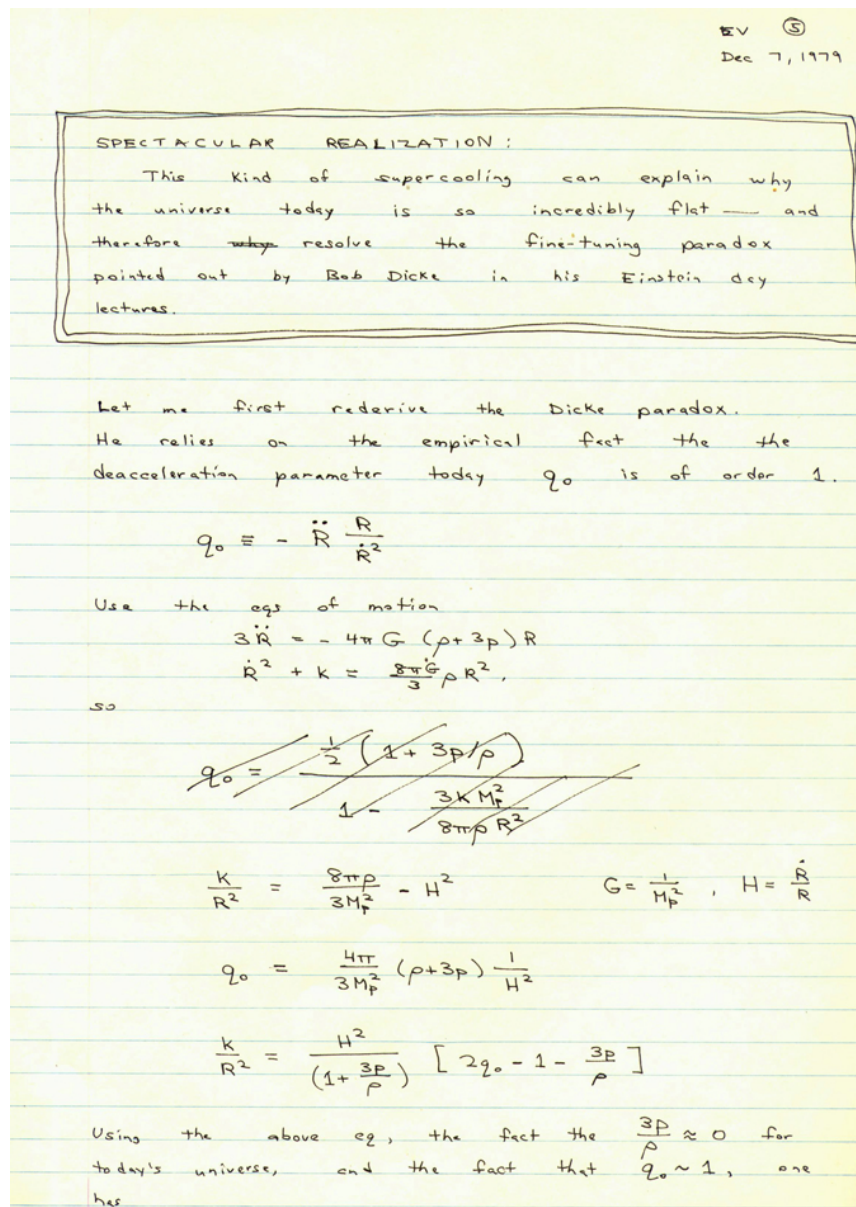 EV ⑤
Dec 7, 1979
SPECTACULAR REALIZATION:
This kind of supercooling can explain why
the universe today is so incredibly flat — and
therefore resolve the fine-tuning paradox
pointed out by Bob Dicke in his Einstein day
lectures.
Let me first rederive the Dicke paradox.
He relies on the empirical fact the the
deacceleration parameter today q₀ is of order 1.
q₀ ≡ - R̈ R/Ṙ²
Use the eqs of motion
3R̈ = - 4πG (ρ+3p)R
Ṙ² + k = 8πG/3 ρR².
so
q₀ = ½ (1 + 3p/ρ) / (1 - 3kMₚ²/8πρR²)
k/R² = 8πρ/3Mₚ² - H² G = 1/Mₚ² , H = Ṙ/R
q₀ = 4π/3Mₚ² (ρ+3p) 1/H²
k/R² = H²/(1+ 3p/ρ) [ 2q₀ - 1 - 3p/ρ ]
Using the above eq, the fact the 3p/ρ ≈ 0 for
today's universe, and the fact that q₀ ~ 1, one
has